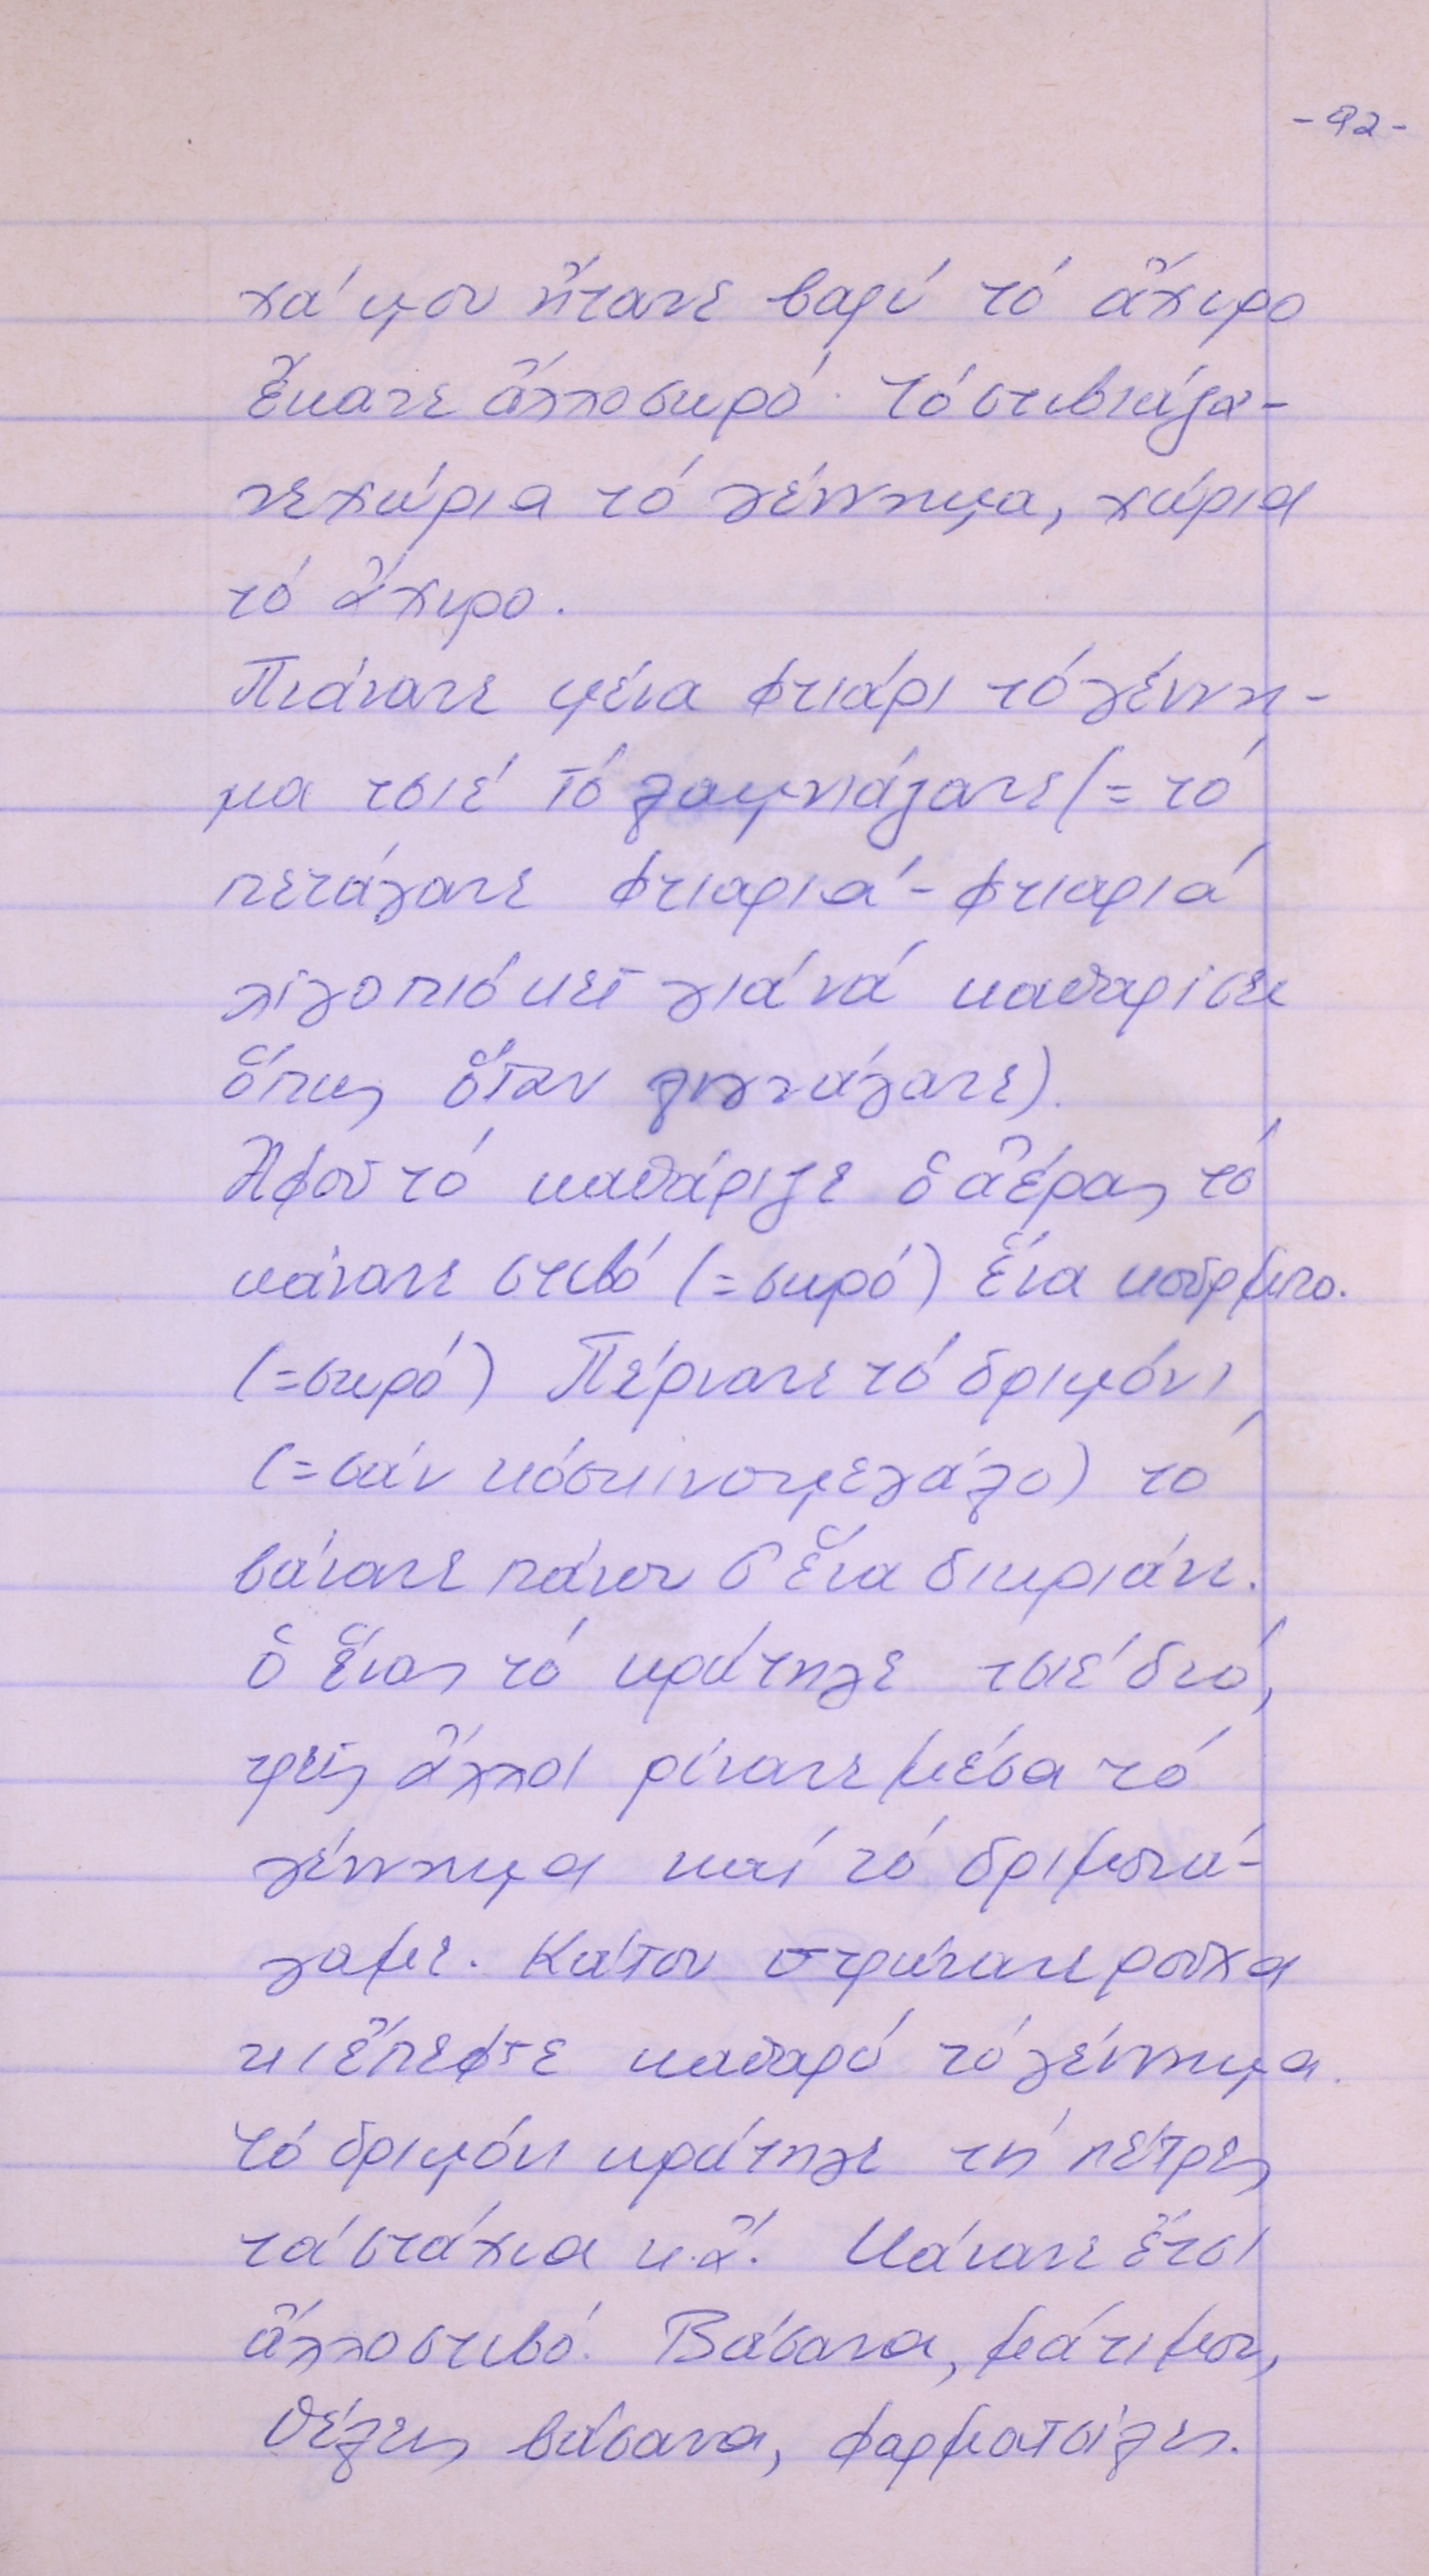 -92-
χάμου ἤτανε βαρύ τό ἄχυρο
ἔκανε ἄλλο σωρό. Τό στιβιάζα-
νε χώρια τό γέννημα, χώρια
τό ἄχυρο.
Πιάνανε μένα φτιάρι τό γέννη-
μα τσιέ τό λαμνιάζανε (= τό
πετάγανε φτιαριά - φτιαριά
λίγο πιό κεῖ γιά νά καθαρίσει
ὅπως ὅταν λιχνάγανε).
Ἀφοῦ τό καθάριζε ὁ ἀέρας τό
κάνανε στιβό (= σωρό) ἕνα κούρμπο.
(= σωρό) Πέρνανε τό δριμόνι
(= σάν κόσκινο μεγάλο) τό
βάνανε πάνου σ' ἕνα δικριάνι.
ὁ ἕνας τό κράτηγε τσιέ διό,
τρεῖς ἄλλοι ρίνανε μέσα τό
γέννημα καί τό δριμονά-
γαμε. Κάτου στρώνανε ροῦχα
κι ἔπεφτε καθαρό τό γέννημα.
Τό δριμόνι κράτηγε τή πέτρες
τά στάχια κ.ἄ. Κάνανε ἔτσι
ἄλλο στιβό. Βάσανα, μάτι μου,
θέλεις βάσανα, φαρματσίλες.